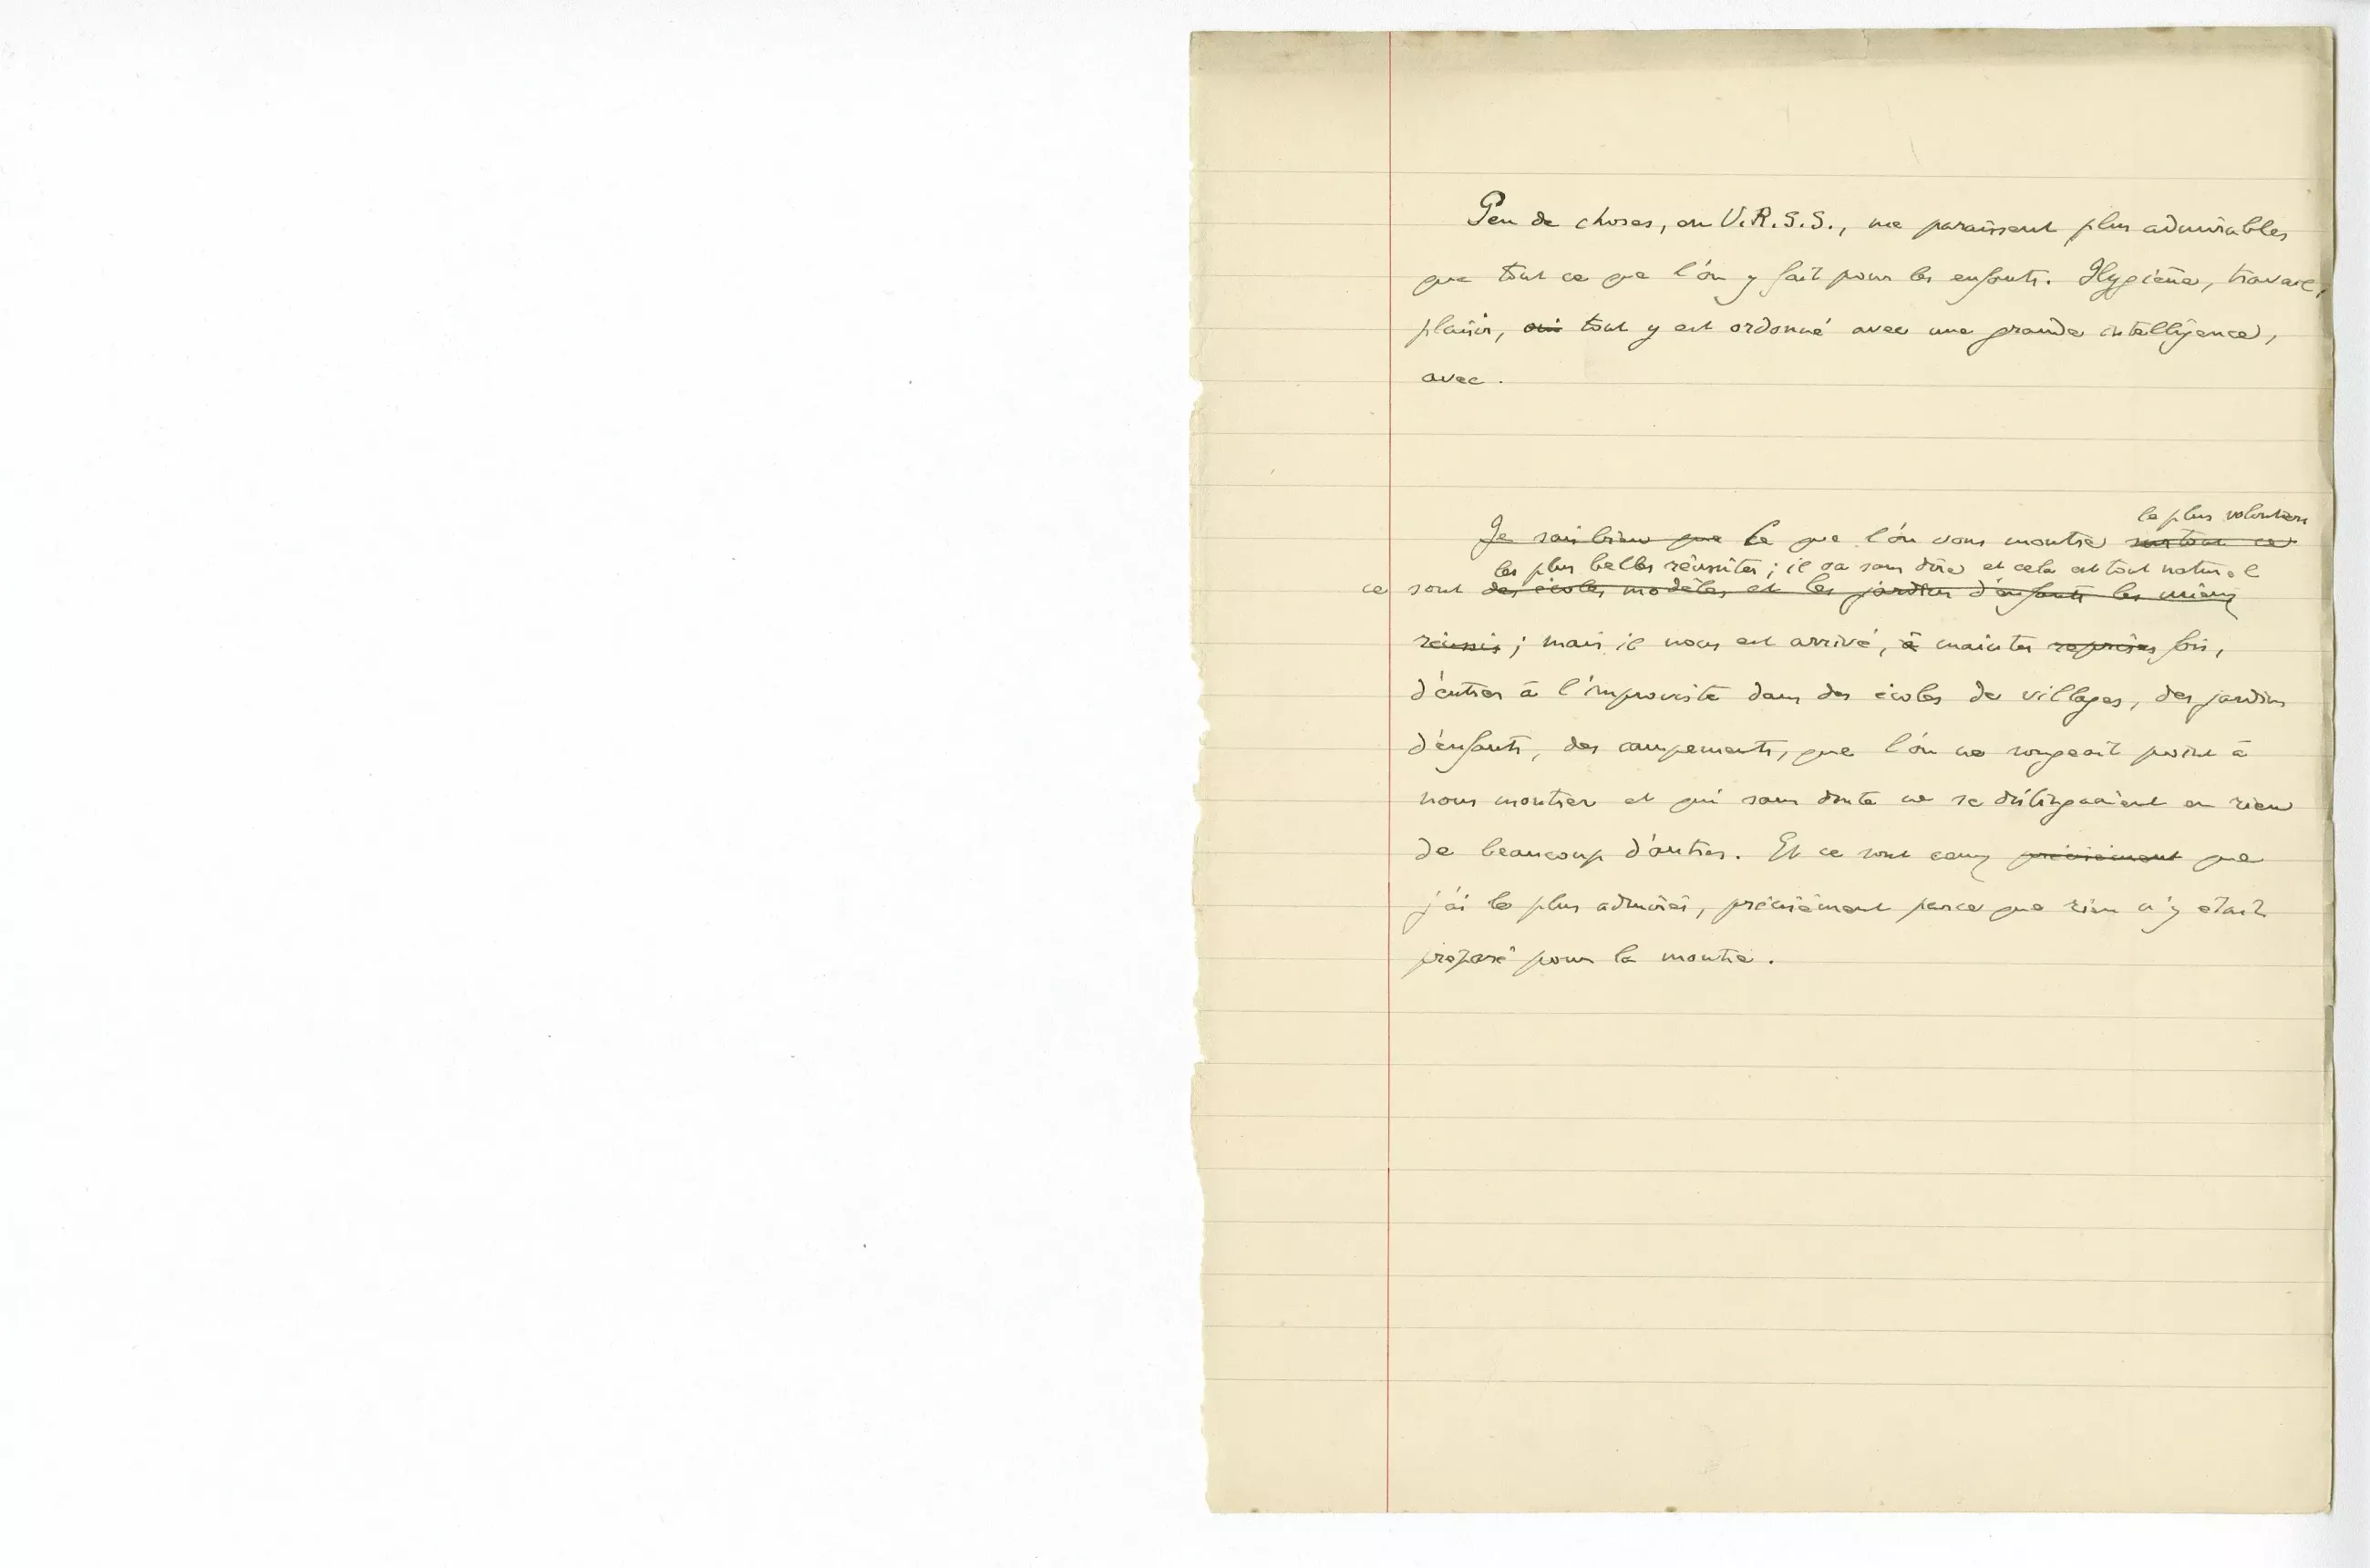 Peu de choses, en U.R.S.S., me paraissent plus admirables
que tout ce que l'on y fait pour les enfants. Hygiène, travail,
plaisir, oui tout y est ordonné avec une grande intelligence,
avec.
le plus volontiers
Je sais bien que Ce que l'on vous montre surtout ce
les plus belles réussites ; il va sans dire et cela est tout naturel
ce sont des écoles modèles et les jardins d'enfants les mieux
réussis ; mais il nous est arrivé, à maintes reprises fois,
d'entrer à l'improviste dans des écoles de villages, des jardins
d'enfants, des campements, que l'on ne songeait point à
nous montrer et qui sans doute ne se distinguaient en rien
de beaucoup d'autres. Et ce sont ceux précisément que
j'ai le plus admirés, précisément parce que rien n'y était
préparé pour la montre.